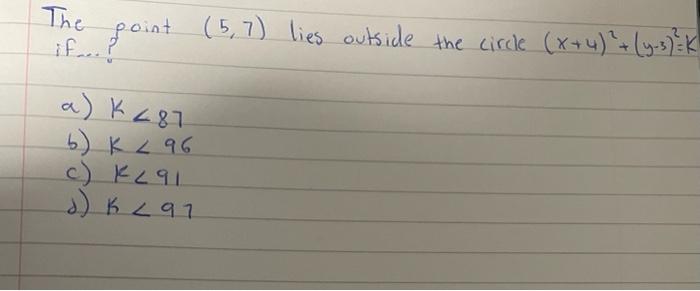 The point (5,7) lies outside the circle (x+4)²+(y-3)²=K
if...?
a) K<87
b) K<96
c) K<91
d) K<97